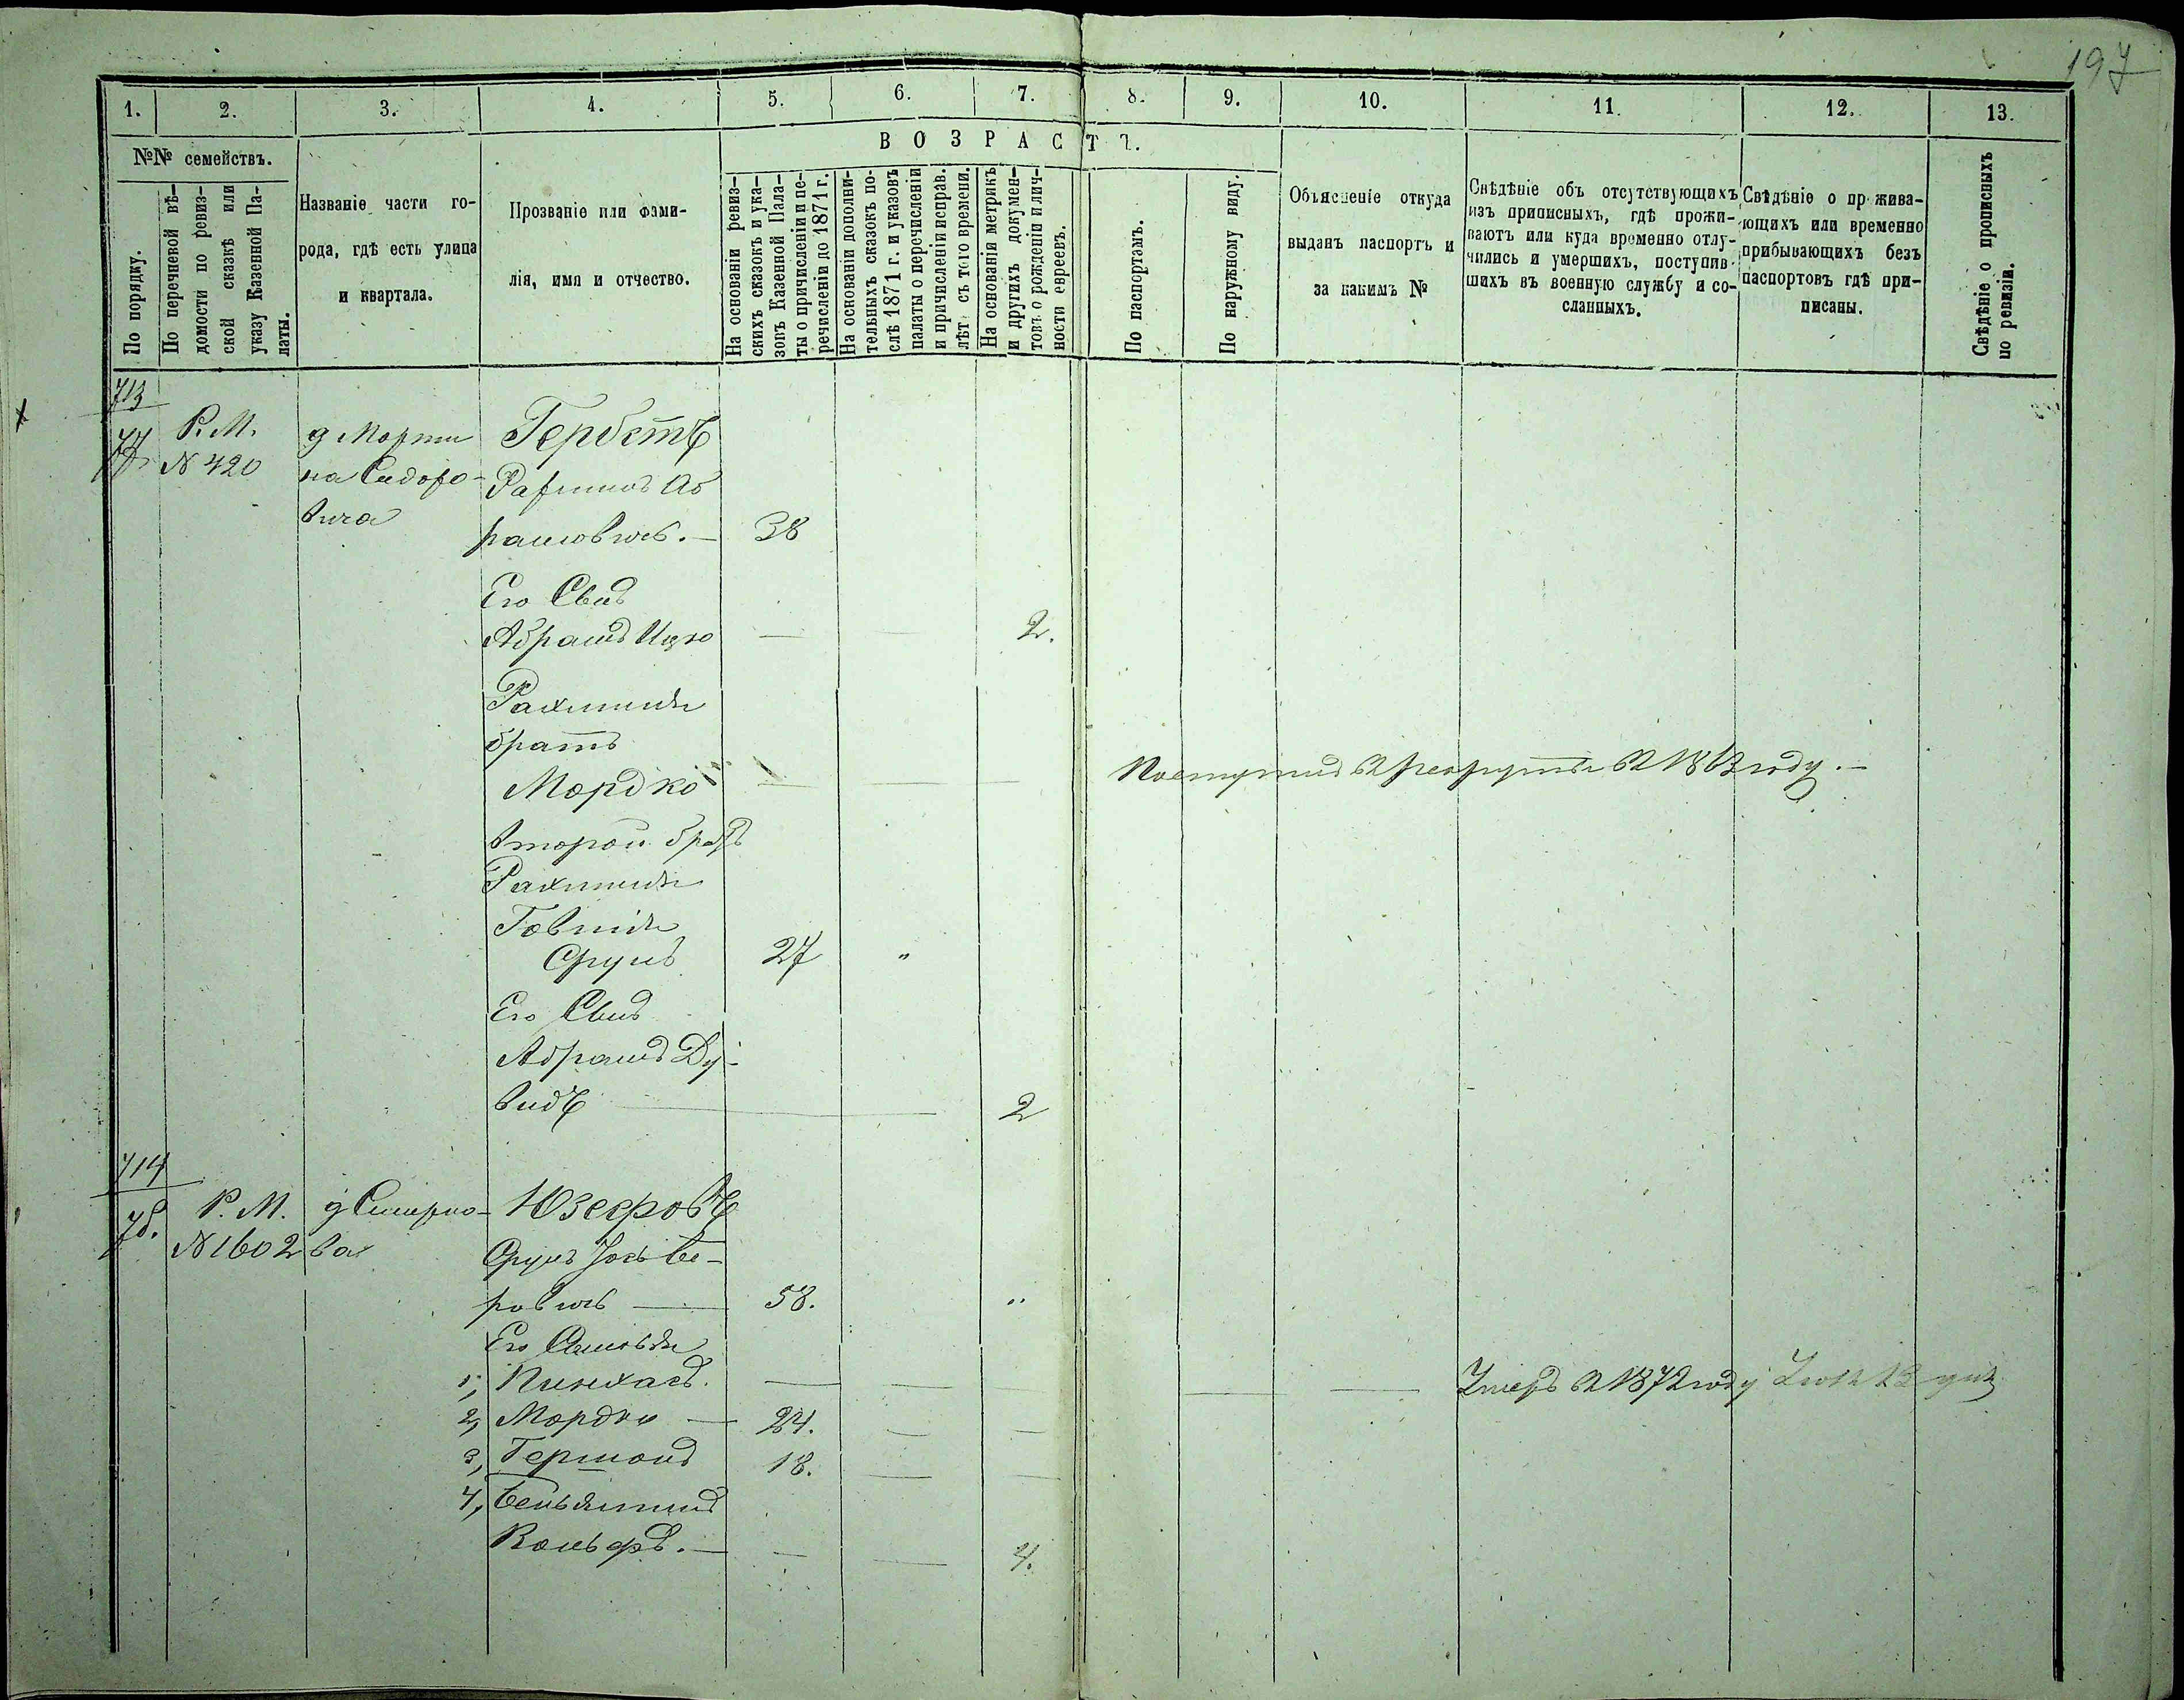 197
1. 2. 3. 4. 5. 6. 7. 8. 9. 10. 11. 12. 13.
№№ семействъ.
По порядку.
По перечневой вѣ-
домости по ревиз-
ской сказкѣ или
указу Казенной Па-
латы.
Названіе части го-
рода, гдѣ есть улица
и квартала.
Прозваніе или фами-
лія, имя и отчество.
ВОЗРАСТЪ.
На основаніи ревиз-
скихъ сказокъ и ука-
зовъ Казенной Пала-
ты о причисленіи и пе-
речисленіи до 1871 г.
На основаніи дополни-
тельныхъ сказокъ по-
слѣ 1871 г. и указовъ
палаты о перечисленіи
и причисленіи исправ.
лѣт съ того времени.
На основаніи метрикъ
и другихъ докумен-
товъ о рожденіи и лич-
ности евреевъ.
По паспортамъ.
По наружному виду.
Объясненіе откуда
выданъ паспортъ и
за какимъ №
Свѣдѣніе объ отсутствующихъ
изъ приписныхъ, гдѣ прожи-
ваютъ или куда временно отлу-
чились и умершихъ, поступив-
шихъ въ военную службу и со-
сланныхъ.
Свѣдѣніе о прожива-
ющихъ или временно
прибывающихъ безъ
паспортовъ гдѣ при-
писаны.
Свѣдѣніе о прописныхъ
по ревизіи.
713
77
Р. М.
N 420
д Марти
на Сидоро-
вича
Гербетъ
Рахмилъ Аб
рамовичъ. — 38
Его Сынъ
Абрамъ Ицко — — 2.
Рахмиля
братъ
Мордко — — — Поступилъ въ рекруты въ 1863 году. —
второй братъ
Рахмиля
Товшія
Сруль 27 "
Его Сынъ
Абрамъ Ду-
видъ — — 2
714
78.
Р. М.
N 1602
д Смирно-
ва
Юзефовъ
Сруль Іось Бе-
ровичъ — 58. "
Его Сыновья
1, Пинхасъ. — — — — Умеръ въ 1872 году
2, Мордко — 24. — —
3, Гершонъ 18. — —
4, Беньяминъ
Вольфъ. — — — 4.